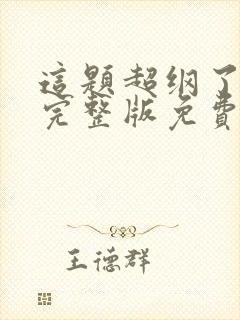 這題超纲了
完整版免費
王德群